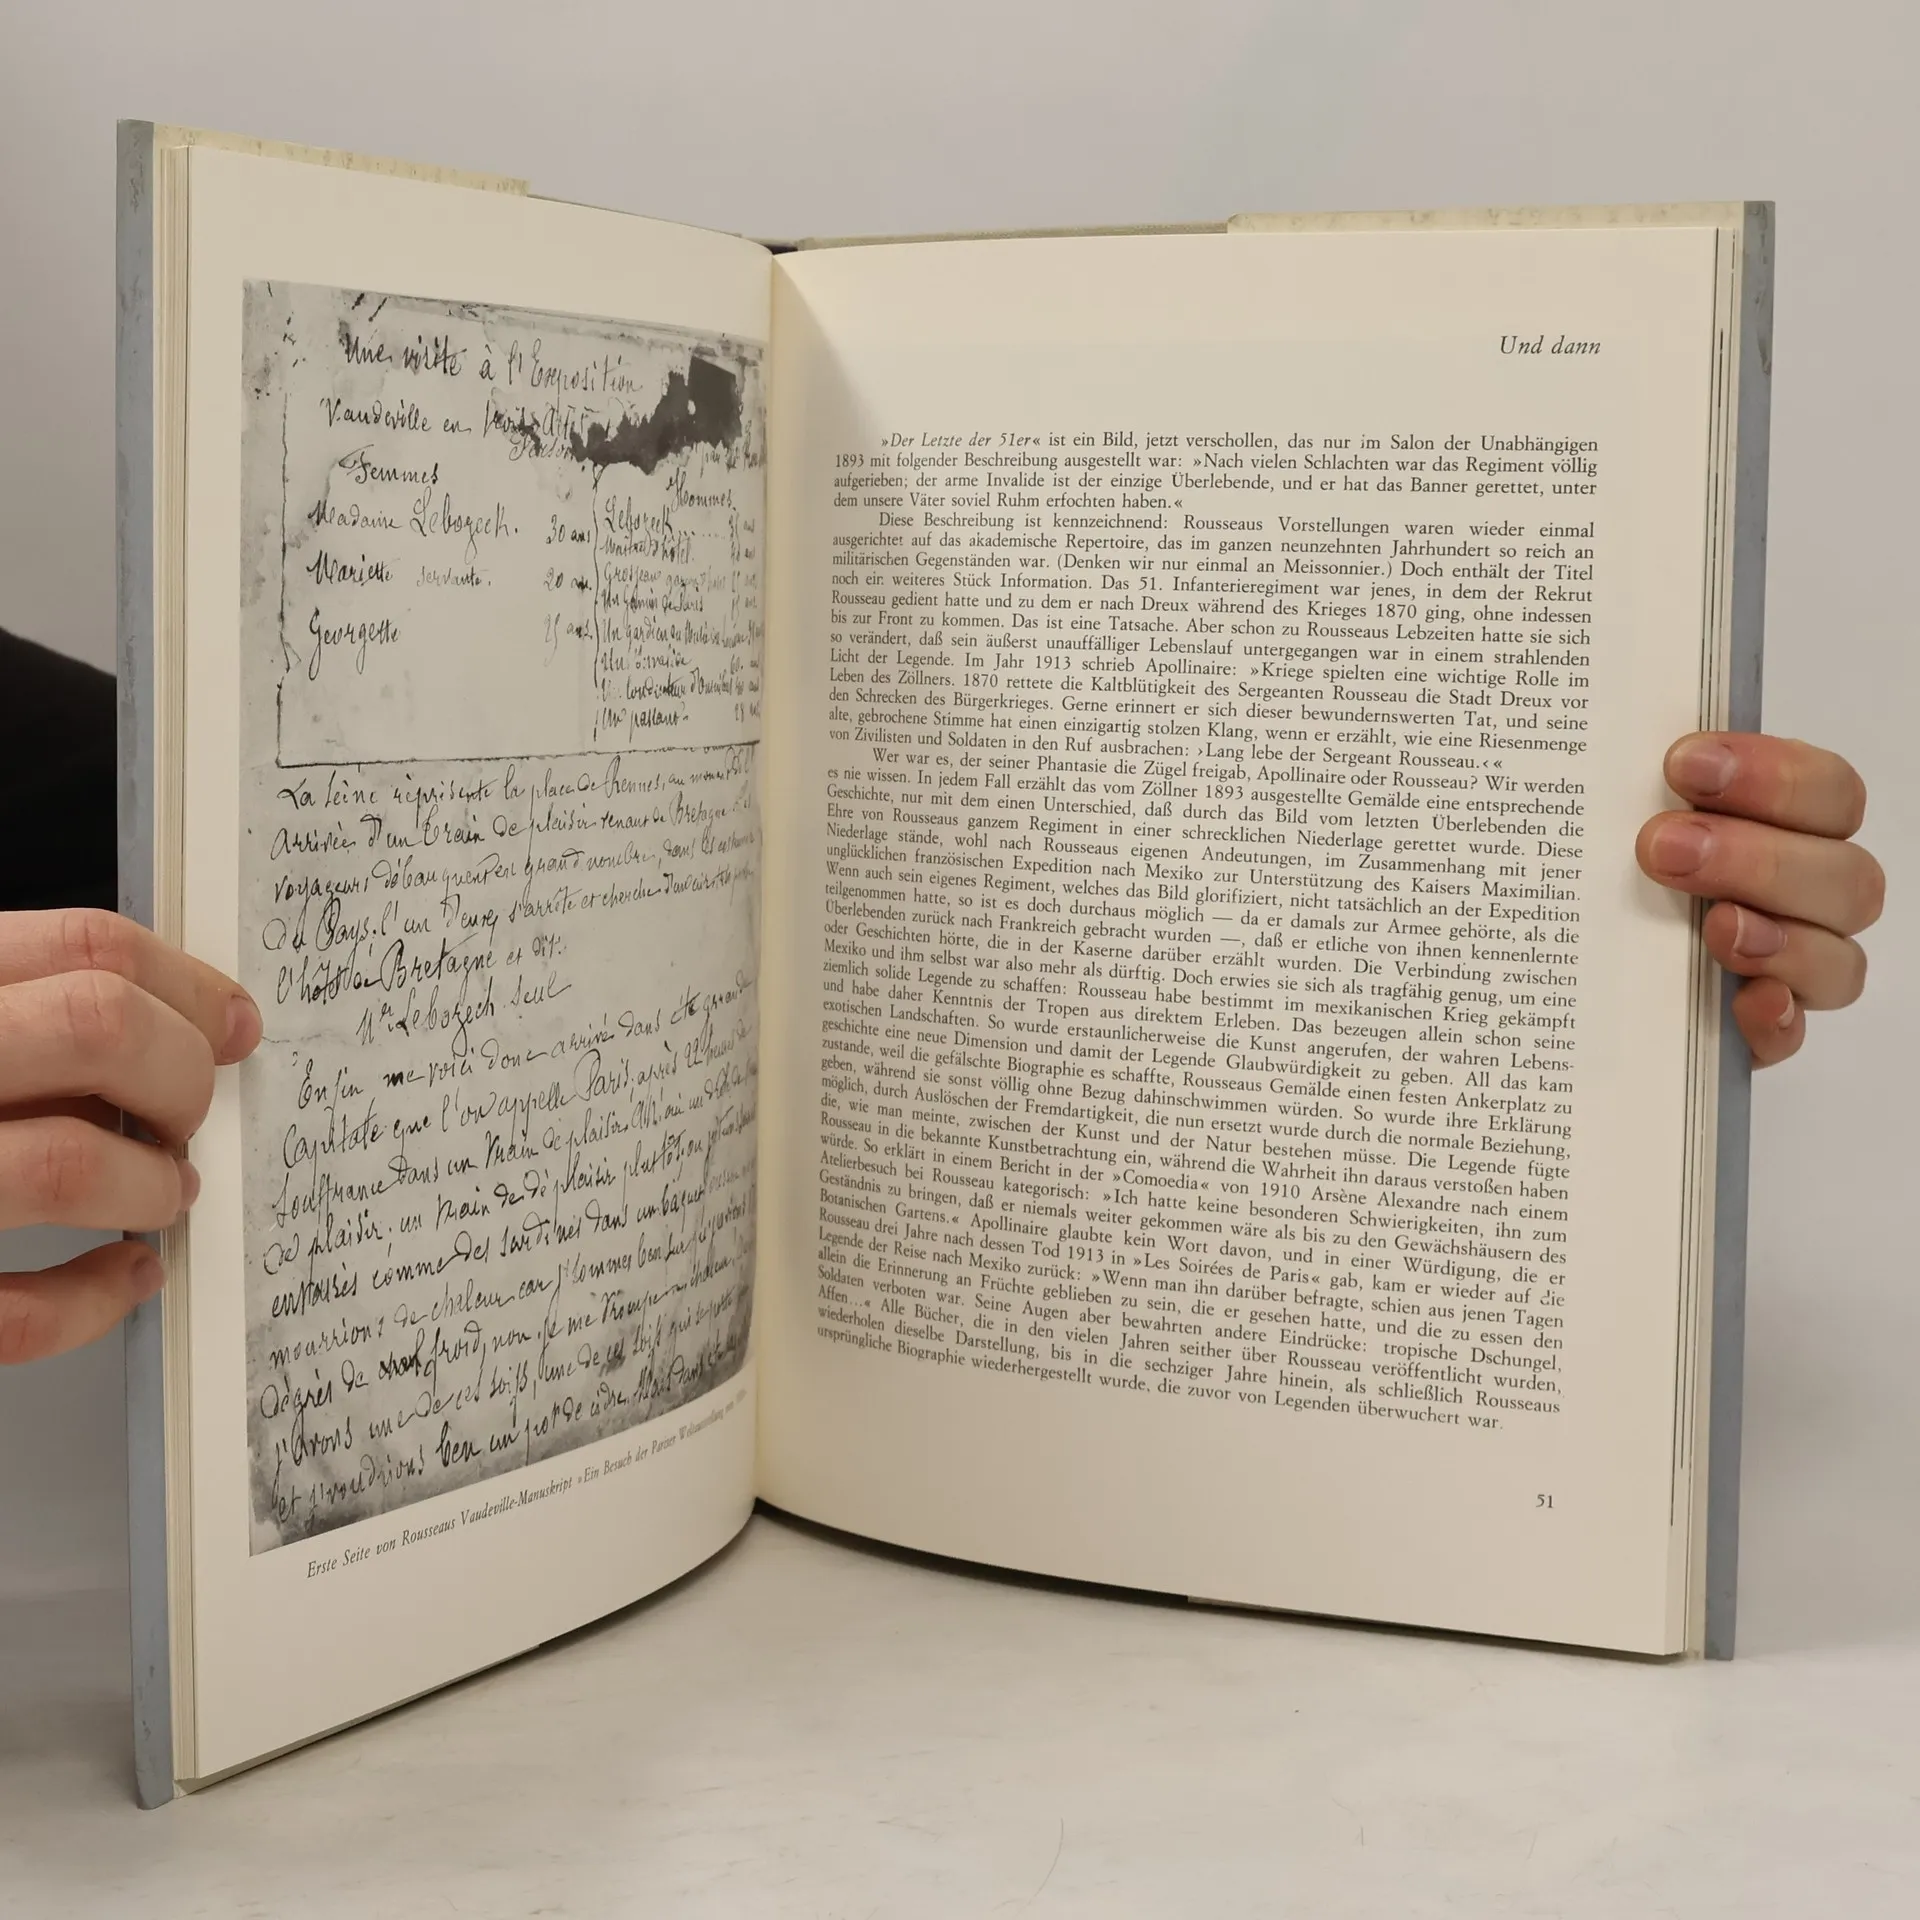 Une visite à l'Exposition
Vaudeville en
Femmes
Hommes
Madame Lebozech. 30 ans
Lebozech
Mariette servante. 20
Georgette
Un gamin de Paris
Un passant
La scène représente la place de Rennes, au moment
Arrivée d'un train de plaisir venant de Bretagne
voyageurs débauquent en grand nombre, dans les costumes
du Pays, l'un d'eux s'arrête et cherche
de Bretagne et dit:
Mr Lebozech seul
Enfin me voici donc arrivé dans cte grande
Capitale que l'on appelle Paris. après 22 heures de
souffrance dans un train de plaisir,
de plaisir. un train de dé plaisir plutôt, ou
entassés comme des sardines dans un baquet
mourrions de chaleur car j'sommes ben sur
dégrés de froid, non. je me trompe chaleur
j'avons une de ces soifs, une de ces soifs qui
et j'voudrions ben un pot de cidre. Mais dans
Erste Seite von Rousseaus Vaudeville-Manuskript »Ein Besuch der Pariser Weltausstellung von
Und dann
»Der Letzte der 51er« ist ein Bild, jetzt verschollen, das nur im Salon der Unabhängigen
1893 mit folgender Beschreibung ausgestellt war: »Nach vielen Schlachten war das Regiment völlig
aufgerieben; der arme Invalide ist der einzige Überlebende, und er hat das Banner gerettet, unter
dem unsere Väter soviel Ruhm erfochten haben.«
Diese Beschreibung ist kennzeichnend: Rousseaus Vorstellungen waren wieder einmal
ausgerichtet auf das akademische Repertoire, das im ganzen neunzehnten Jahrhundert so reich an
militärischen Gegenständen war. (Denken wir nur einmal an Meissonnier.) Doch enthält der Titel
noch ein weiteres Stück Information. Das 51. Infanterieregiment war jenes, in dem der Rekrut
Rousseau gedient hatte und zu dem er nach Dreux während des Krieges 1870 ging, ohne indessen
bis zur Front zu kommen. Das ist eine Tatsache. Aber schon zu Rousseaus Lebzeiten hatte sie sich
so verändert, daß sein äußerst unauffälliger Lebenslauf untergegangen war in einem strahlenden
Licht der Legende. Im Jahr 1913 schrieb Apollinaire: »Kriege spielten eine wichtige Rolle im
Leben des Zöllners. 1870 rettete die Kaltblütigkeit des Sergeanten Rousseau die Stadt Dreux vor
den Schrecken des Bürgerkrieges. Gerne erinnert er sich dieser bewundernswerten Tat, und seine
alte, gebrochene Stimme hat einen einzigartig stolzen Klang, wenn er erzählt, wie eine Riesenmenge
von Zivilisten und Soldaten in den Ruf ausbrachen: ›Lang lebe der Sergeant Rousseau.‹ «
Wer war es, der seiner Phantasie die Zügel freigab, Apollinaire oder Rousseau? Wir werden
es nie wissen. In jedem Fall erzählt das vom Zöllner 1893 ausgestellte Gemälde eine entsprechende
Geschichte, nur mit dem einen Unterschied, daß durch das Bild vom letzten Überlebenden die
Ehre von Rousseaus ganzem Regiment in einer schrecklichen Niederlage gerettet wurde. Diese
Niederlage stände, wohl nach Rousseaus eigenen Andeutungen, im Zusammenhang mit jener
unglücklichen französischen Expedition nach Mexiko zur Unterstützung des Kaisers Maximilian.
Wenn auch sein eigenes Regiment, welches das Bild glorifiziert, nicht tatsächlich an der Expedition
teilgenommen hatte, so ist es doch durchaus möglich — da er damals zur Armee gehörte, als die
Überlebenden zurück nach Frankreich gebracht wurden —, daß er etliche von ihnen kennenlernte
oder Geschichten hörte, die in der Kaserne darüber erzählt wurden. Die Verbindung zwischen
Mexiko und ihm selbst war also mehr als dürftig. Doch erwies sie sich als tragfähig genug, um eine
ziemlich solide Legende zu schaffen: Rousseau habe bestimmt im mexikanischen Krieg gekämpft
und habe daher Kenntnis der Tropen aus direktem Erleben. Das bezeugen allein schon seine
exotischen Landschaften. So wurde erstaunlicherweise die Kunst angerufen, der wahren Lebens-
geschichte eine neue Dimension und damit der Legende Glaubwürdigkeit zu geben. All das kam
zustande, weil die gefälschte Biographie es schaffte, Rousseaus Gemälde einen festen Ankerplatz zu
geben, während sie sonst völlig ohne Bezug dahinschwimmen würden. So wurde ihre Erklärung
möglich, durch Auslöschen der Fremdartigkeit, die nun ersetzt wurde durch die normale Beziehung,
die, wie man meinte, zwischen der Kunst und der Natur bestehen müsse. Die Legende fügte
Rousseau in die bekannte Kunstbetrachtung ein, während die Wahrheit ihn daraus verstoßen haben
würde. So erklärt in einem Bericht in der »Comoedia« von 1910 Arsène Alexandre nach einem
Atelierbesuch bei Rousseau kategorisch: »Ich hatte keine besonderen Schwierigkeiten, ihn zum
Geständnis zu bringen, daß er niemals weiter gekommen wäre als bis zu den Gewächshäusern des
Botanischen Gartens.« Apollinaire glaubte kein Wort davon, und in einer Würdigung, die er
Rousseau drei Jahre nach dessen Tod 1913 in »Les Soirées de Paris« gab, kam er wieder auf die
Legende der Reise nach Mexiko zurück: »Wenn man ihn darüber befragte, schien aus jenen Tagen
allein die Erinnerung an Früchte geblieben zu sein, die er gesehen hatte, und die zu essen den
Soldaten verboten war. Seine Augen aber bewahrten andere Eindrücke: tropische Dschungel,
Affen...« Alle Bücher, die in den vielen Jahren seither über Rousseau veröffentlicht wurden,
wiederholen dieselbe Darstellung, bis in die sechziger Jahre hinein, als schließlich Rousseaus
ursprüngliche Biographie wiederhergestellt wurde, die zuvor von Legenden überwuchert war.
51